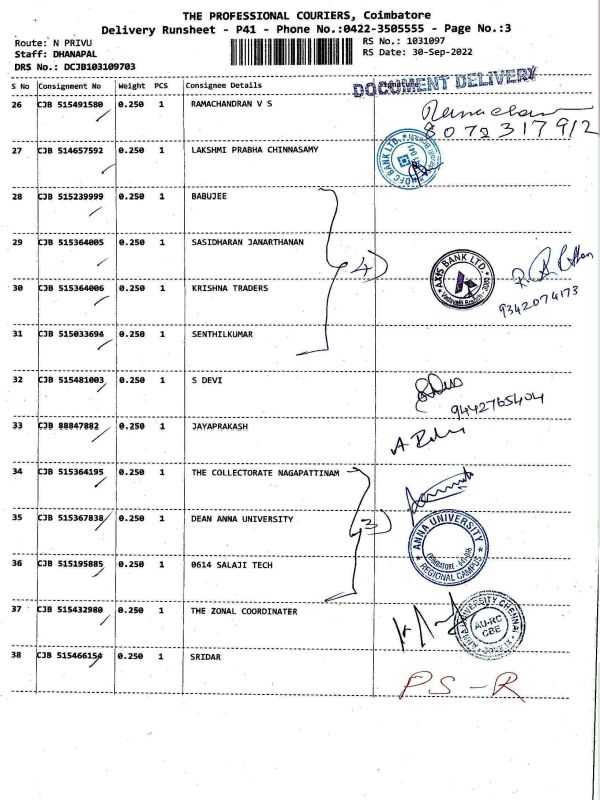 THE PROFESSIONAL COURIERS, Coimbatore
Delivery Runsheet - P41 - Phone No.:0422-3505555 - Page No.:3
Route: N PRIVU
RS No.: 1031097
Staff: DHANAPAL
RS Date: 30-Sep-2022
DRS No.: DCJB103109703
S No Consignment No Weight PCS Consignee Details
DOCUMENT DELIVERY
26 CJB 515491580 0.250 1 RAMACHANDRAN V S
8072317912
27 CJB 514657592 0.250 1 LAKSHMI PRABHA CHINNASAMY
HDFC BANK LTD.
28 CJB 515239999 0.250 1 BABUJEE
29 CJB 515364005 0.250 1 SASIDHARAN JANARTHANAN
4)
AXIS BANK LTD.
30 CJB 515364006 0.250 1 KRISHNA TRADERS
9342074173
31 CJB 515033694 0.250 1 SENTHILKUMAR
32 CJB 515481003 0.250 1 S DEVI
9442765404
33 CJB 88847882 0.250 1 JAYAPRAKASH
34 CJB 515364195 0.250 1 THE COLLECTORATE NAGAPATTINAM
35 CJB 515367838 0.250 1 DEAN ANNA UNIVERSITY
3)
ANNA UNIVERSITY
REGIONAL CAMPUS
36 CJB 515195885 0.250 1 0614 SALAJI TECH
37 CJB 515432980 0.250 1 THE ZONAL COORDINATER
ANNA UNIVERSITY CHENNAI
AU-RC
CBE
38 CJB 515466154 0.250 1 SRIDAR
PS-R